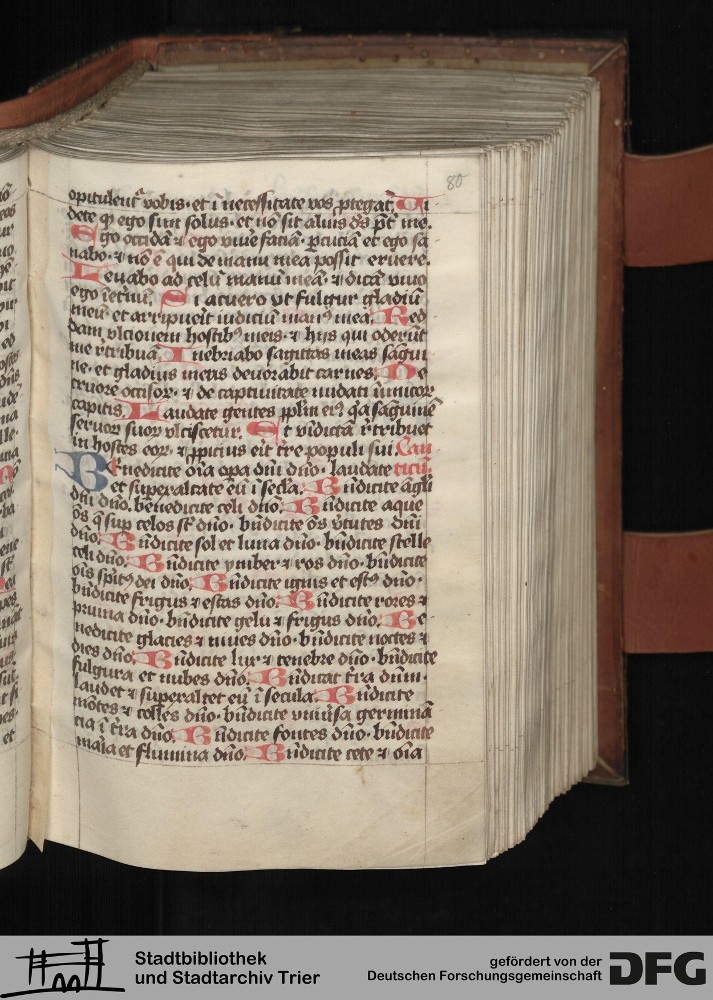 80
opitulent᷑ vobis · et ī necessitate vos ꝓtegāt. Ui
dete ꝙ ego sum solus · et nō sit alius dꝰs p̄t me.
Ego occidā ⁊ ego viuē faciā · ꝑcuciā et ego sa
nabo · ⁊ nō ē qui de manu mea possit eruere.
Leuabo ad celū manū meā · ⁊ dicā viuo
ego īet᷑nū. Si acuero vt fulgur gladiū
meū et arripu᷑it iudiciū manꝰ mea. Red
dam vlcionem hostibꝫ meis · ⁊ hijs qui oder̄ūt
me r̄tribuā. Inebriabo sagittas meas sāgui
ne · et gladius meus deuorabit carnes. De
cruore occisoꝝ · ⁊ de captiuitate nudati īimicoꝝ
capitis. Laudate gentes pplm̄ eiꝰ q̄a saguinē
seruoꝝ suoꝝ vlciscetur. Et vīdictā r̄tribuet
in hostes eoꝝ · ⁊ ꝓpicius erit t̄re populi sui. Can
Benedicite oīa opa dn̄i dn̄o · laudate ticū.
et superaltate eū ī secl̄a. Bn̄dicite āgli
dn̄i dn̄o. benedicite celi dn̄o. Bn̄dicite aque
oē̄s q̄ sup celos st̄ dn̄o · bn̄dicite oē̄s v᷑tutes dn̄i
dn̄o. Bn̄dicite sol et luna dn̄o · bn̄dicite stelle
celi dn̄o. Bn̄dicite ymber ⁊ ros dn̄o · bn̄dicite
oīs spirit̄ꝰ dei dn̄o. Bn̄dicite ignis et estꝰ dn̄o ·
bn̄dicite frigus ⁊ estas dn̄o. Bn̄dicite rores ⁊
pruina dn̄o · bn̄dicite gelu ⁊ frigus dn̄o. Be
nedicite glacies ⁊ niues dn̄o · bn̄dicite noctes ⁊
dies dn̄o. Bn̄dicite lux ⁊ tenebre dn̄o · bn̄dicite
fulgura et nubes dn̄o. Bn̄dicat t̄ra dn̄um ·
laudet ⁊ superaltet eū ī secula. Bn̄dicite
mōtes ⁊ colles dn̄o · bn̄dicite vniū᷑sa germinā
cia ī t̄ra dn̄o. Bn̄dicite fontes dn̄o · bn̄dicite
mar̄ia et flumina dn̄o. Bn̄dicite cete ⁊ oīa
Stadtbibliothek
und Stadtarchiv Trier
gefördert von der
Deutschen Forschungsgemeinschaft DFG